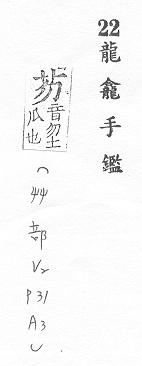 22龍龕手鑑
芴音勿土
瓜也
(艸部V2 P31 A3)